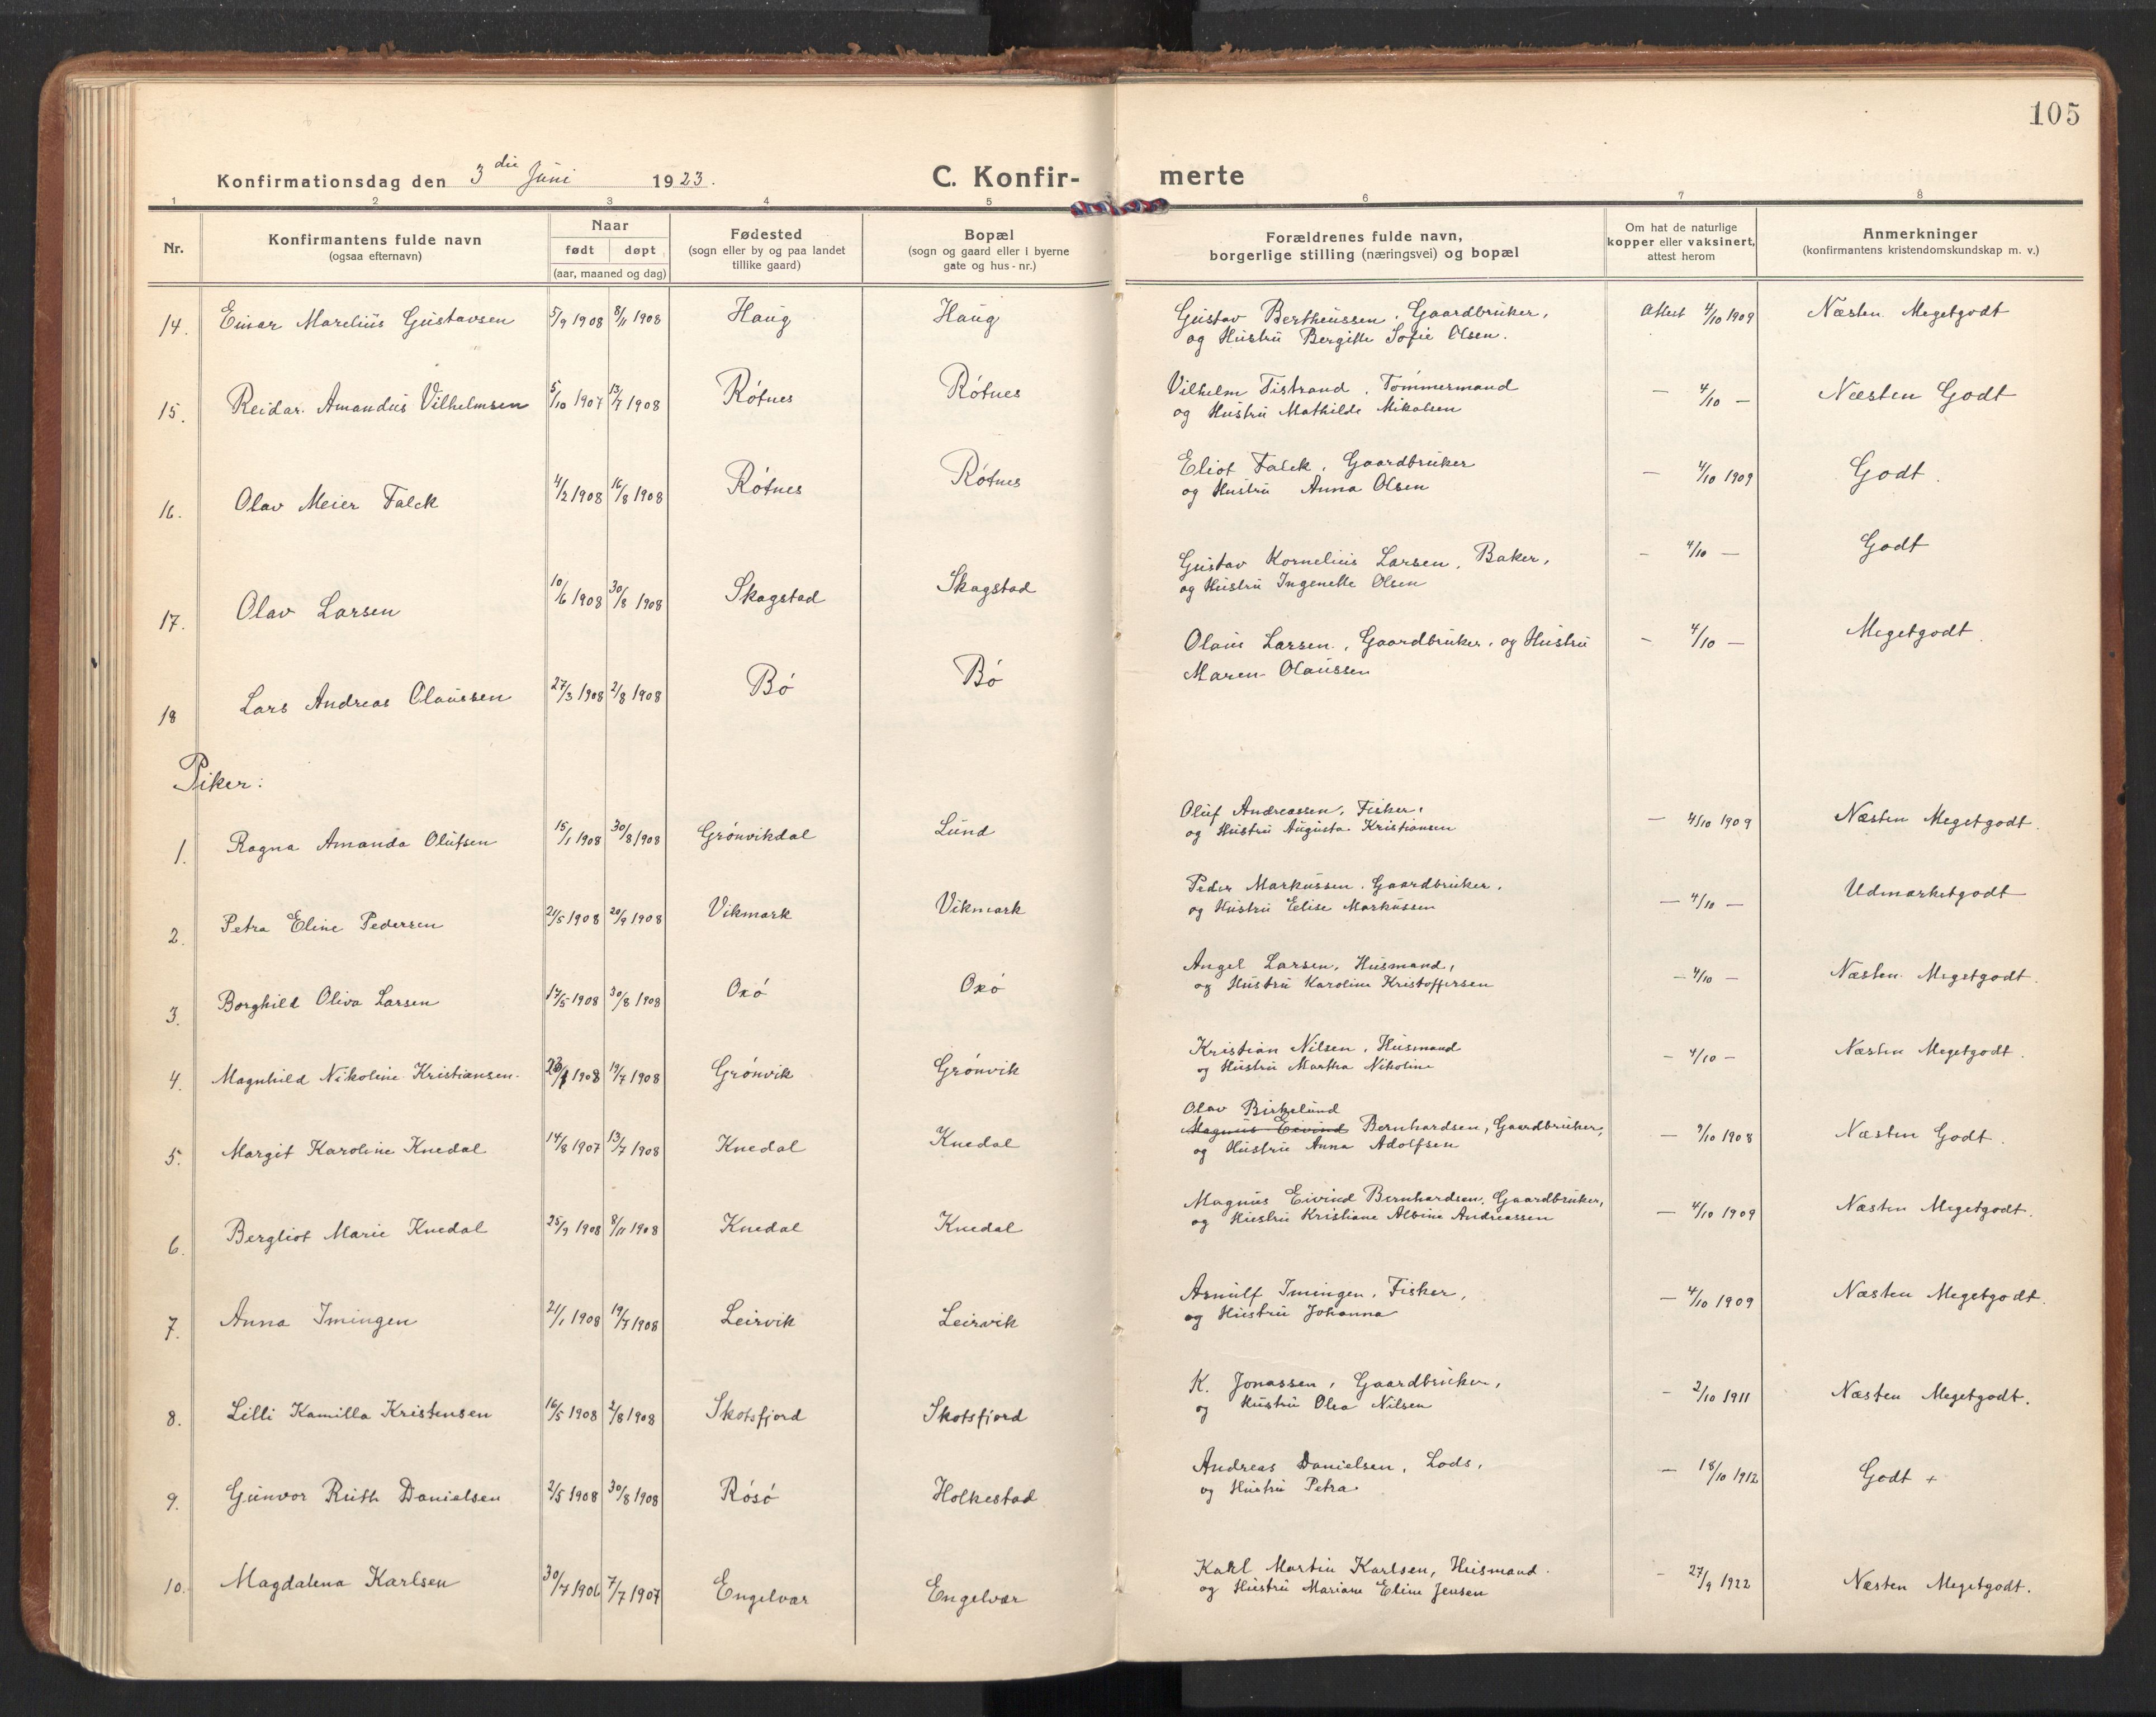 105
Konfirmationsdag den 3die Juni 1923.
C. Konfir-
merte
1 2 3 4 5 6 7 8
Nr.
Konfirmantens fulde navn
(ogsaa efternavn)
Naar
født døpt
(aar, maaned og dag)
Fødested
(sogn eller by og paa landet
tillike gaard)
Bopæl
(sogn og gaard eller i byerne
gate og hus-nr.)
Forældrenes fulde navn,
borgerlige stilling (næringsvei) og bopæl
Om hat de naturlige
kopper eller vaksinert,
attest herom
Anmerkninger
(konfirmantens kristendomskundskap m. v.)
14. Einar Marelius Gustavsen 5/9 1908 8/11 1908 Haug Haug Gustav Bertheussen, Gaardbruker, Attest 4/10 1909 Næsten Megetgodt
og Hustru Bergitte Sofie Olsen.
15. Reidar Amandus Vilhelmsen 5/10 1907 13/7 1908 Rótnes Rótnes Vilhelm Tistrand, Tømmermand — 4/10 — Næsten Godt
og Hustru Mathilde Mikalsen
16. Olav Meier Falck 4/2 1908 16/8 1908 Rótnes Rótnes Eliot Falck, Gaardbruker — 4/10 1909 Godt.
og Hustru Anna Olsen
17. Olav Larsen 10/6 1908 30/8 1908 Skagstad Skagstad Gustav Kornelius Larsen, Baker, — 4/10 — Godt
og Hustru Ingenette Olsen
18 Lars Andreas Olaussen 27/3 1908 2/8 1908 Bó Bó Olaus Larsen, Gaardbruker, og Hustru — 4/10 — Megetgodt.
Maren Olaussen
Piker:
1. Ragna Amanda Olufsen 15/1 1908 30/8 1908 Grónvikdal Lund Oluf Andreassen, Fisker, — 4/10 1909 Næsten Megetgodt.
og Hustru Augusta Kristiansen
2. Petra Eline Pedersen 21/5 1908 20/9 1908 Vikmark Vikmark Peder Markussen, Gaardbruker, — 4/10 — Udmerketgodt
og Hustru Elise Markussen
3. Borghild Oliva Larsen 17/5 1908 30/8 1908 Oxó Oxó Angel Larsen, Husmand, — 4/10 — Næsten Megetgodt.
og Hustru Karoline Kristoffersen
4. Magnhild Nikoline Kristiansen 1908 19/7 1908 Grónvik Grónvik Kristian Nilsen, Husmand — 4/10 — Næsten Megetgodt.
og Hustru Martha Nikoline
Olav Birkelund
5. Margit Karoline Knedal 14/8 1907 13/7 1908 Knedal Knedal Magnus Eivind Bernhardsen, Gaardbruker, — 9/10 1908 Næsten Godt.
og Hustru Anna Adolfsen
6. Bergliot Marie Knedal 25/9 1908 8/11 1908 Knedal Knedal Magnus Eivind Bernhardsen, Gaardbruker, — 4/10 1909 Næsten Megetgodt.
og Hustru Kristiane Albine Andreassen
7. Anna Imingen 21/1 1908 19/7 1908 Leirvik Leirvik Arnulf Imingen, Fisker, — 4/10 1909 Næsten Megetgodt.
og Hustru Johanna
8. Lilli Kamilla Kristensen 16/5 1908 2/8 1908 Skotsfjord Skotsfjord K. Jonassen, Gaardbruker, — 2/10 1911 Næsten Megetgodt.
og Hustru Olea Nilsen
9. Gunvor Ruth Danielsen 2/5 1908 30/8 1908 Rósó Holkestad Andreas Danielsen, Lods, — 18/10 1912 Godt +
og Hustru Petra
10. Magdalena Karlsen 30/7 1906 7/7 1907 Engelvær Engelvær Karl Martin Karlsen, Husmand. — 27/9 1922 Næsten Megetgodt.
og Hustru Mariane Eline Jensen